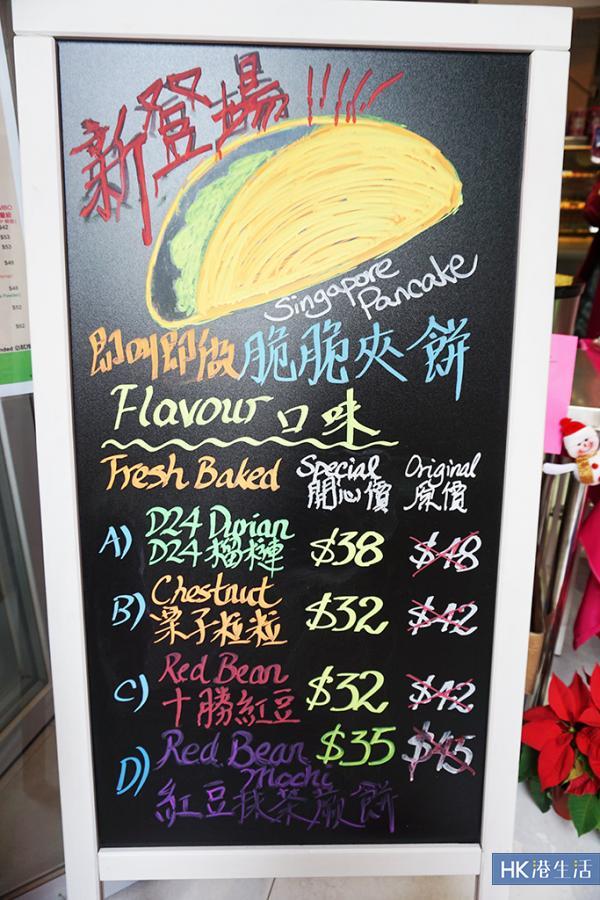 新登場!!!!!
Singapore
Pancake
即叫即做脆脆夾餅
Flavour 口味
Fresh Baked
Special Original
開心價 原價
A) D24 Durian
D24 榴槤 $38 $48
B) Chestnut
栗子粒粒 $32 $42
C) Red Bean
十勝紅豆 $32 $42
D) Red Bean $35 $45
Mochi
紅豆抹茶蕨餅
HK港生活
$42
$53
$53
$49
$52
$52